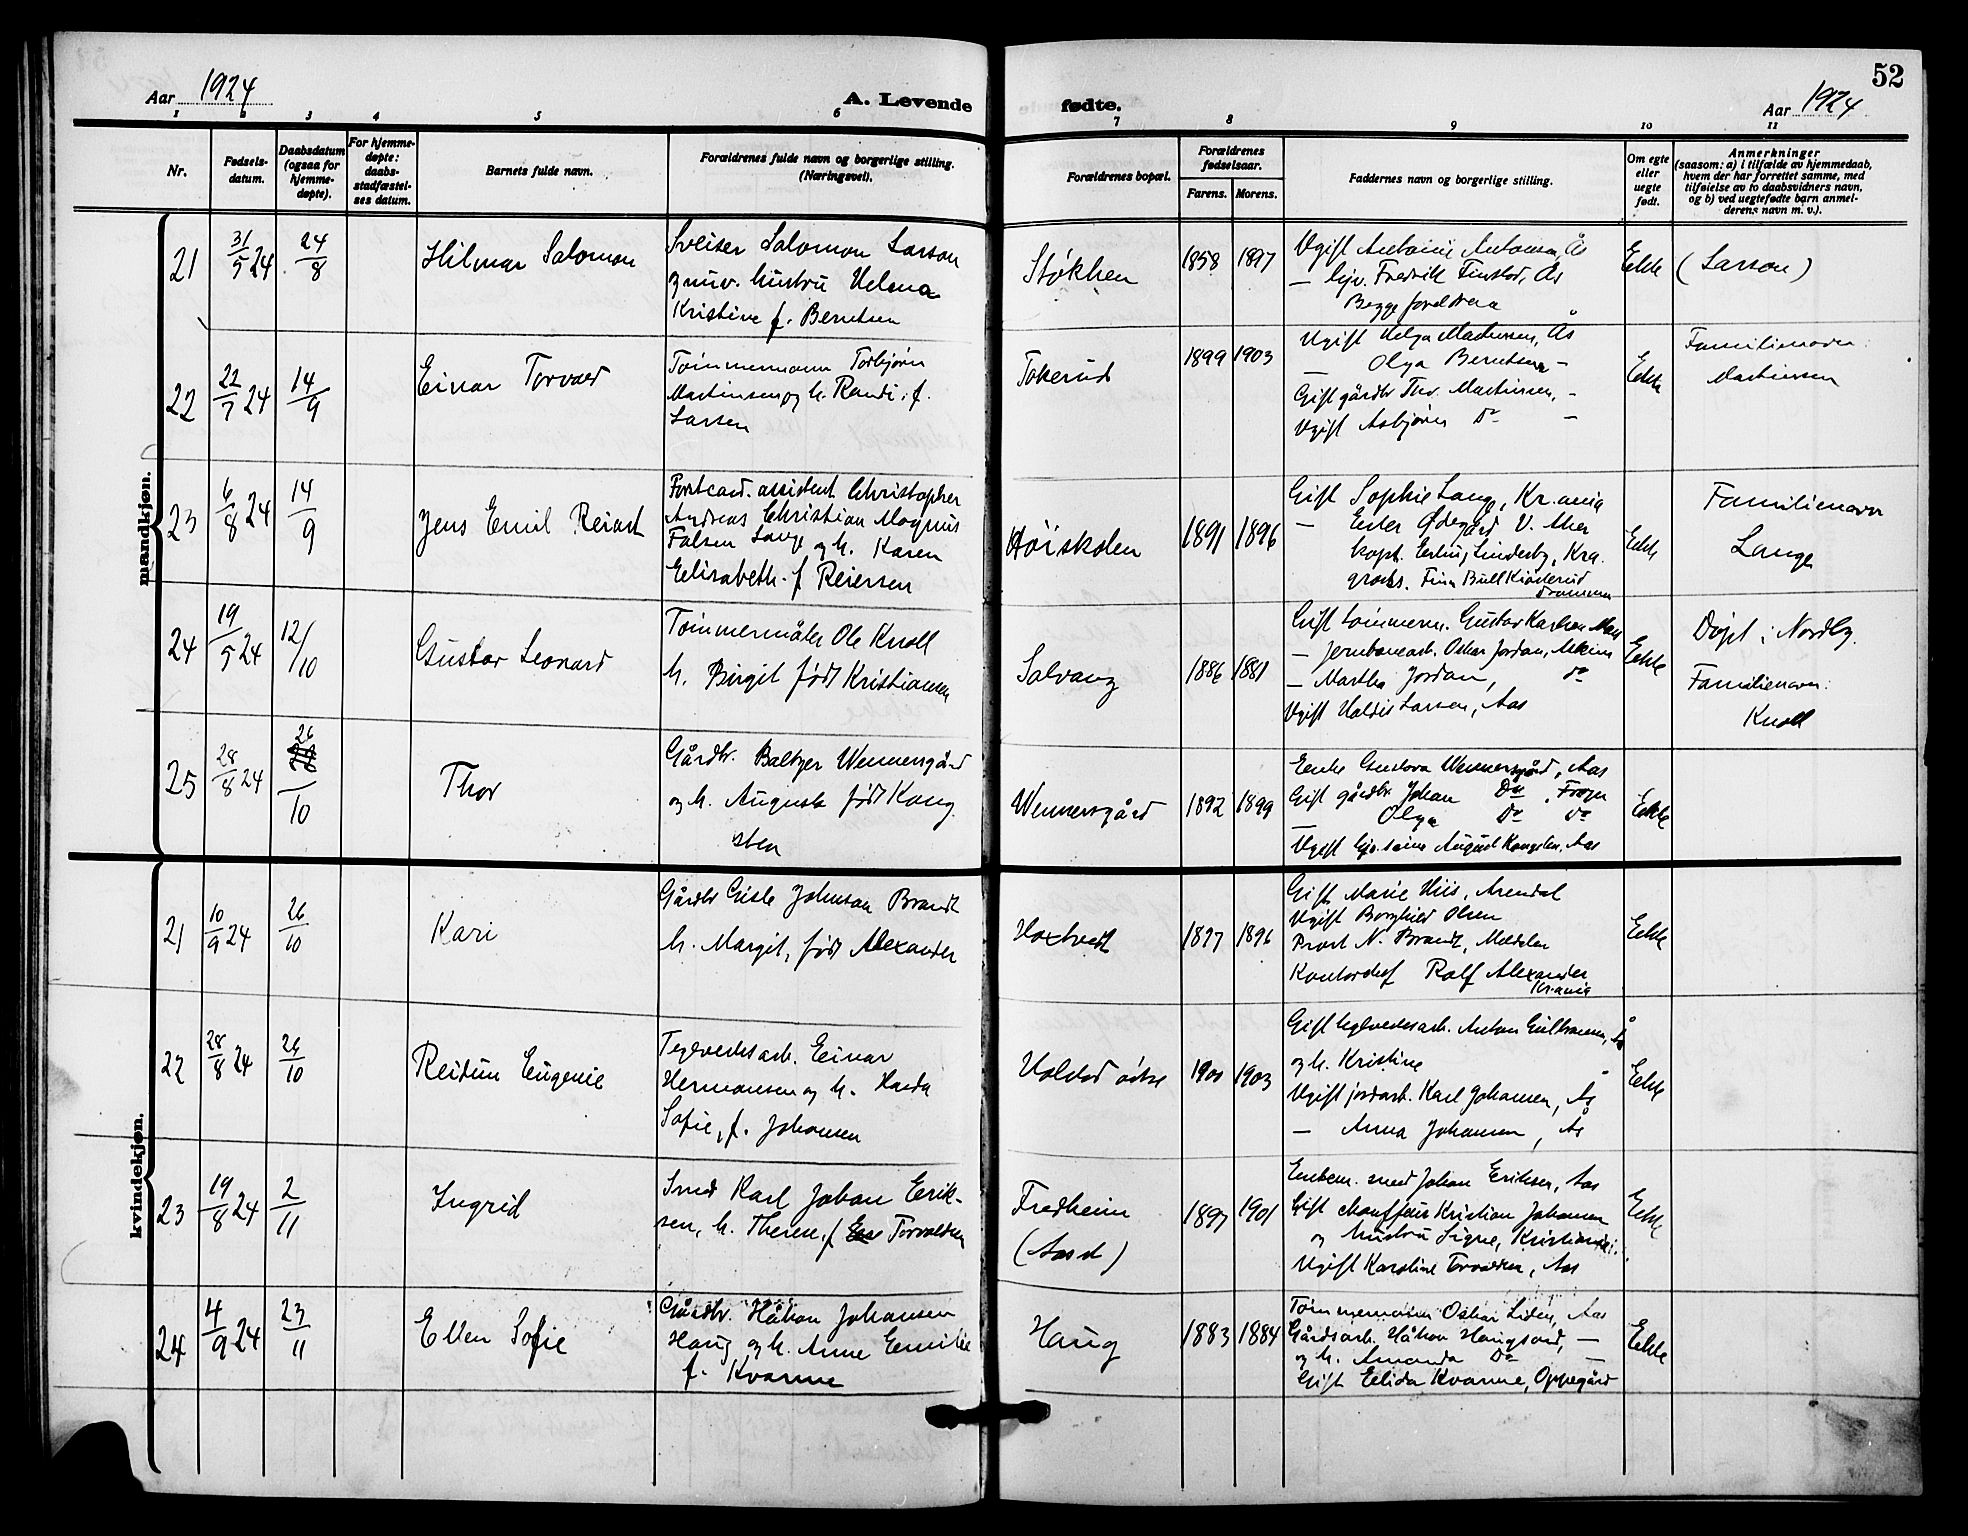 Aar 1924
A. Levende
fødte.
Aar 1924
52
1 2 3 4 5 6 7 8 9 10 11
Nr.
Fødsels-
datum.
Daabsdatum
(ogsaa for
hjemme-
døpte).
For hjemme-
døpte:
daabs-
stadfæstel-
ses datum.
Barnets fulde navn.
Forældrenes fulde navn og borgerlige stilling.
(Næringsvei).
Forældrenes bopæl.
Forældrenes
fødselsaar.
Farens. Morens.
Faddernes navn og borgerlige stilling.
Om egte
eller
uegte
født.
Anmerkninger
(saasom: a) i tilfælde av hjemmedaab,
hvem der har forrettet samme, med
tilføielse av to daabsvidners navn,
og b) ved uegtefødte barn anmel-
derens navn m. v.).
mandkjøn.
21
31/5 24
24/8
Hilmar Salomon
Sveiser Salomon Larson
og hustru Helena
Kristine f. Berntsen
Støkken
1858 1897
Ugift Antonie Antonsen, Ås
— Fredrik Finstad, Ås
Begge foreldrene
Ekte
(Larson)
22
22/7 24
14/9
Einar Torvald
Tømmermann Torbjørn
Martinsen og h. Randi, f.
Larsen
Tokerud
1899 1903
Ugift Helga Martinsen, Ås
— Olga Berntsen —
Gift gårdbr. Thv. Martinsen, —
Ugift Asbjørn Do —
Ekte
Familienavn:
Martinsen
23
6/8 24
14/9
Jens Emil Reiert
Forstcand. assistent Christopher
Andreas Christian Magnus
Falsen Lange og h. Karen
Elisabeth f. Reiersen
Høiskolen
1891 1896
Gift Sophie Lange, Kr.ania
— Ester Ødegård V. Aker
kapt. Erling Linderby, Kra.
gross. Finn Bull Kiøsterud
Drammen
Ekte
Familienavn
Lange
24
19/5 24
12/10
Gustav Leonard
Tømmermåler Ole Knoll
h. Birgit født Kristiansen
Solvang
1886 1881
Gift tømmerm. Gustav Karlsen
— Jernbanearb. Oskar Jordan, Askim
— Martha Jordan, do
Ugift Haldis Larsen, Aas
Ekte
Døpt i Nordby.
Familienavn:
Knoll
25
28/8 24
26/10
Thor
Gårdbr. Baltzer Wennersgård
og h. Augusta født Kong
sten
Wennersgård
1892 1899
Enke Gustava Wennersgård, Aas
Gift gårdbr. Johan Do, Frogn
— Olga Do do
Ugift August Kongsten, Aas
Ekte
kvindekjøn.
21
10/9 24
26/10
Kari
Gårdbr Gisle Johnson Brandt
h. Margit, født Alexander
Holstvedt
1897 1896
Gift Marie Hiis, Arendal
Ugift Borghild Olsen
Prost N. Brandt, Meldalen
Kontorchef Rolf Alexander
Kr.ania
Ekte
22
28/8 24
26/10
Reidun Eugenie
Teglverksarb. Einar
Hermansen og h. Harda
Sofie, f. Johansen
Holstad
1901 1903
Gift teglverksarb. Anton Gulbransen, Ås
og h. Kristine
Ugift jordarb. Karl Johansen, Ås
— Anna Johansen, Ås
Ekte
23
19/8 24
2/11
Ingrid
Smed Karl Johan Erik-
sen, h. Therese, f. Torvaldsen
Fredheim
(Aas st)
1897 1901
Enkem. smed Johan Eriksen, Aas
Gift chauffeur Kristian Johansen
og hustru Signe, Kristiania.
Ugift Karoline Torvaldsen, Aas
Ekte
24
4/9 24
23/11
Ellen Sofie
Gårdbr. Håkon Johansen
Haug og h. Anne Emilie
f. Kvarme
Haug
1883 1884
Tømmermann Oskar Liden, Aas
Gårdsarb. Håkon Haugsand, —
og h. Amanda Do —
Gift Elida Kvarme, Oppegård
Ekte